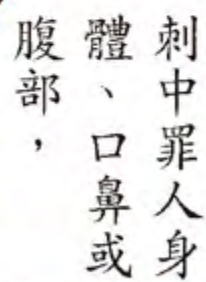 刺中罪人身
體、口鼻或
腹部，